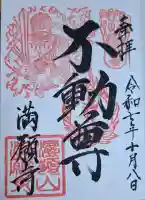 奉拝
令和七年十月八日
不動尊
満願寺